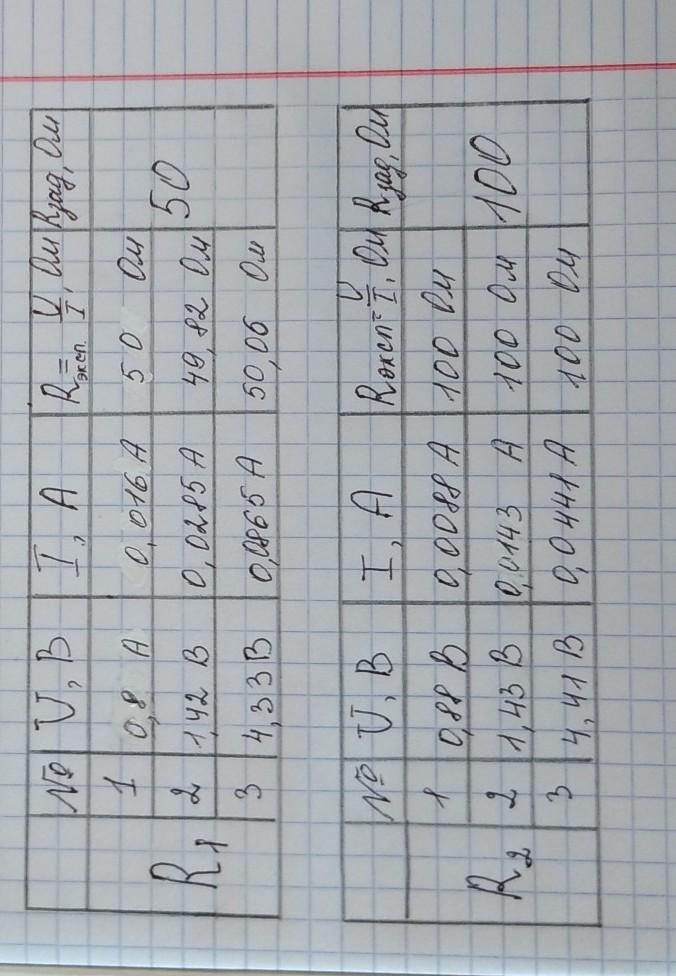 № U, В I, А Rэксп.=U/I, Ом Rзад, Ом
R1 1 0,8 А 0,016 А 50 Ом 50
2 1,42 В 0,0285 А 49,82 Ом
3 4,33 В 0,0865 А 50,06 Ом
№ U, В I, А Rэксп=U/I, Ом Rзад, Ом
R2 1 0,88 В 0,0088 А 100 Ом 100
2 1,43 В 0,0143 А 100 Ом
3 4,41 В 0,0441 А 100 Ом